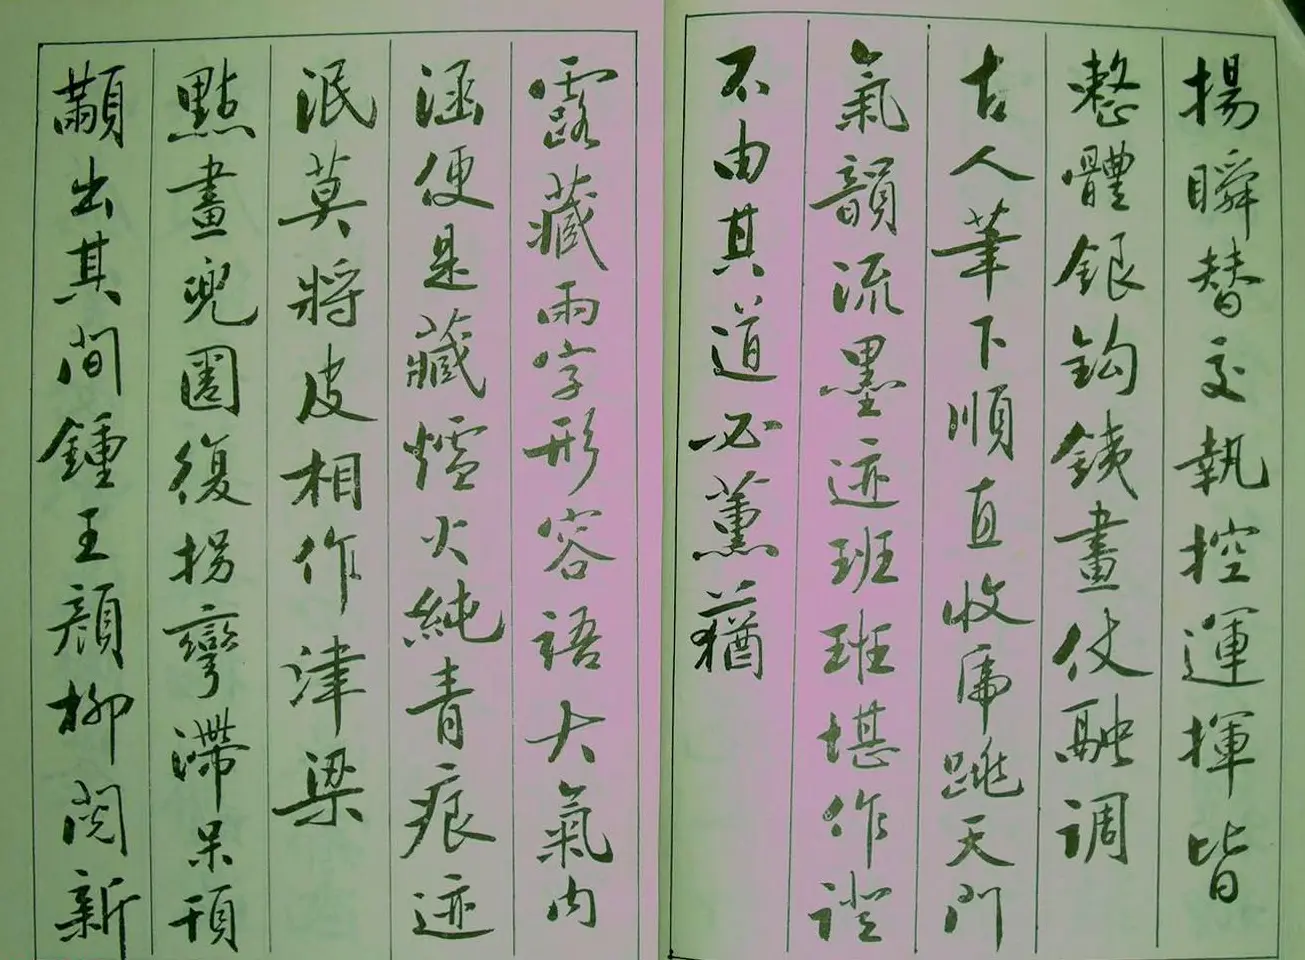 揚瞬替交執控運揮皆
整體銀鈎鐵畫仗融调
古人筆下順直收虎跳天門
氣韻流墨迹班班堪作證
不由其道必薰蕕
露藏兩字形容语大氣内
涵便是藏爐火純青痕迹
泯莫將皮相作津梁
點畫兜圈復拐彎滯呆頇
顢出其間鍾王顔柳閱新